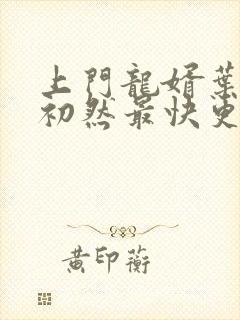 上門龍婿葉
初然最快更
黃印蘅